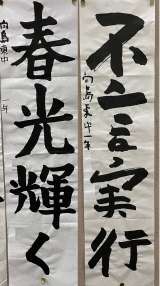 不言実行
向島東中一年
春光輝く
向島東中 一年